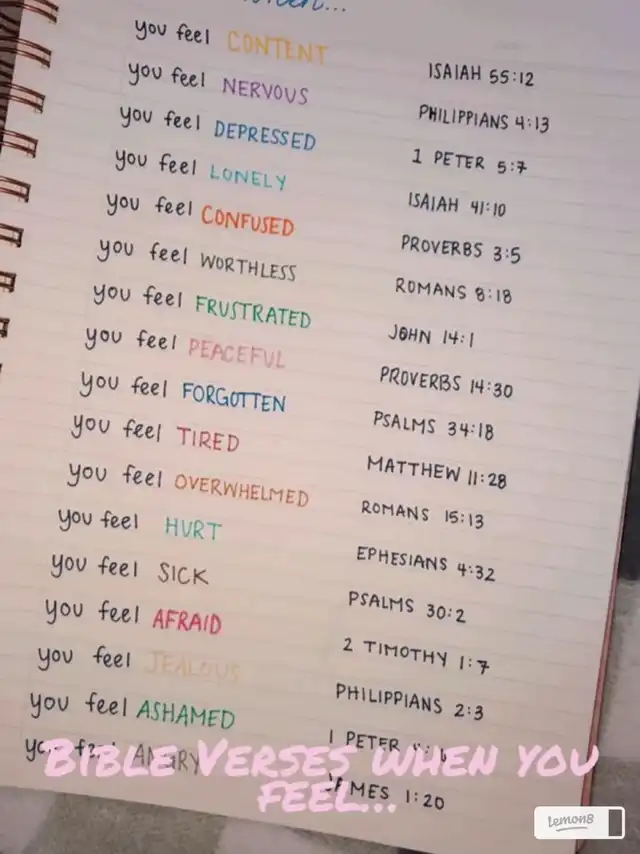 you feel CONTENT ISAIAH 55:12
you feel NERVOUS PHILIPPIANS 4:13
you feel DEPRESSED 1 PETER 5:7
you feel LONELY ISAIAH 41:10
you feel CONFUSED PROVERBS 3:5
you feel WORTHLESS ROMANS 8:18
you feel FRUSTRATED JOHN 14:1
you feel PEACEFUL PROVERBS 14:30
you feel FORGOTTEN PSALMS 34:18
you feel TIRED MATTHEW 11:28
you feel OVERWHELMED ROMANS 15:13
you feel HURT EPHESIANS 4:32
you feel SICK PSALMS 30:2
you feel AFRAID 2 TIMOTHY 1:7
you feel JEALOUS PHILIPPIANS 2:3
you feel ASHAMED 1 PETER
you feel ANGRY JAMES 1:20
BIBLE VERSES WHEN YOU
FEEL...
lemon8